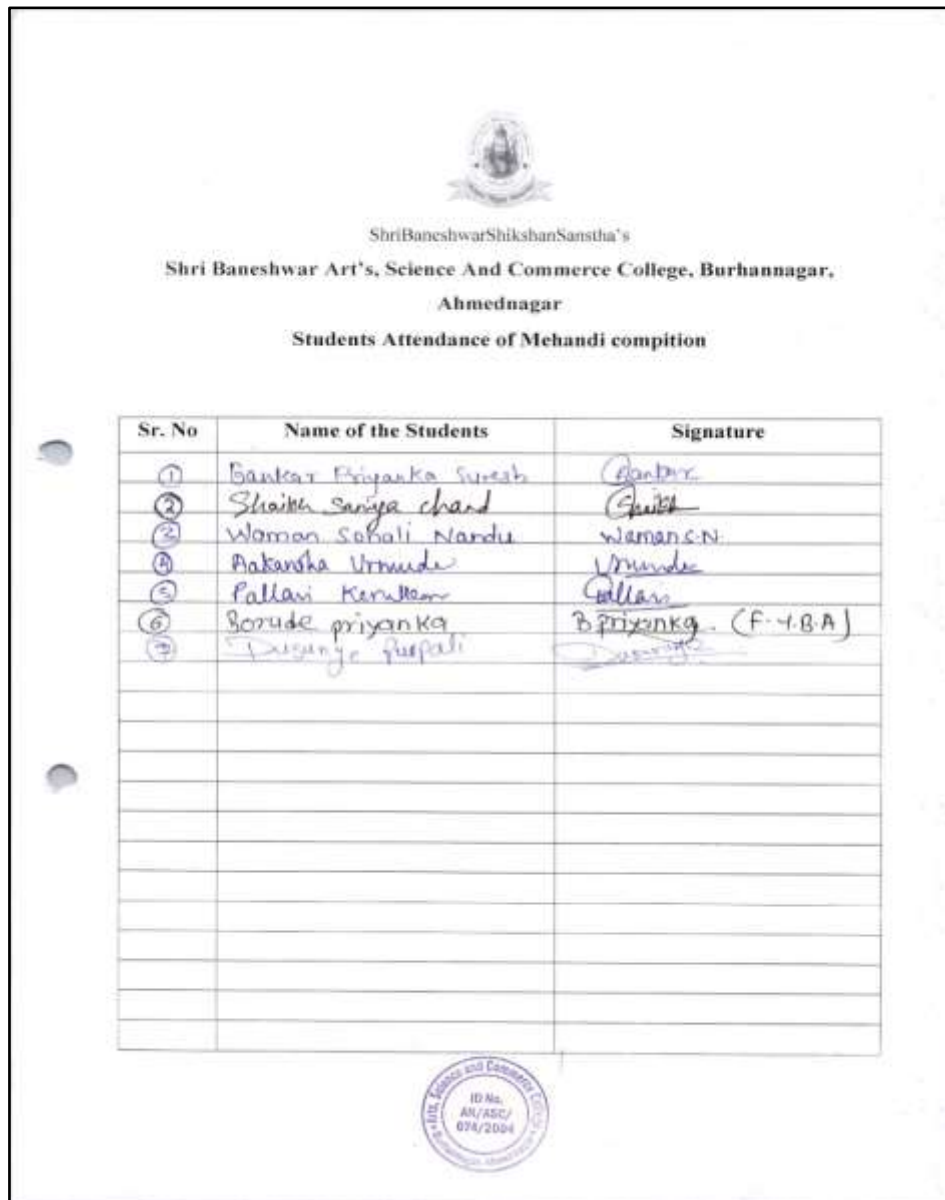 ShriBaneshwarShikshanSanstha's
Shri Baneshwar Art's, Science And Commerce College, Burhannagar,
Ahmednagar
Students Attendance of Mehandi compition
Sr. No Name of the Students Signature
1 Bankar Priyanka Suresh Bankar
2 Shaikh Saniya chand Shaikh
3 Waman Sonali Nandu Waman S.N.
4 Aakansha Urmude Urmude
5 Pallavi Pallavi
6 Borude priyanka B priyanka. (F.Y.B.A)
7
Arts, Science and Commerce College
ID No.
AN/ASC/
074/2004